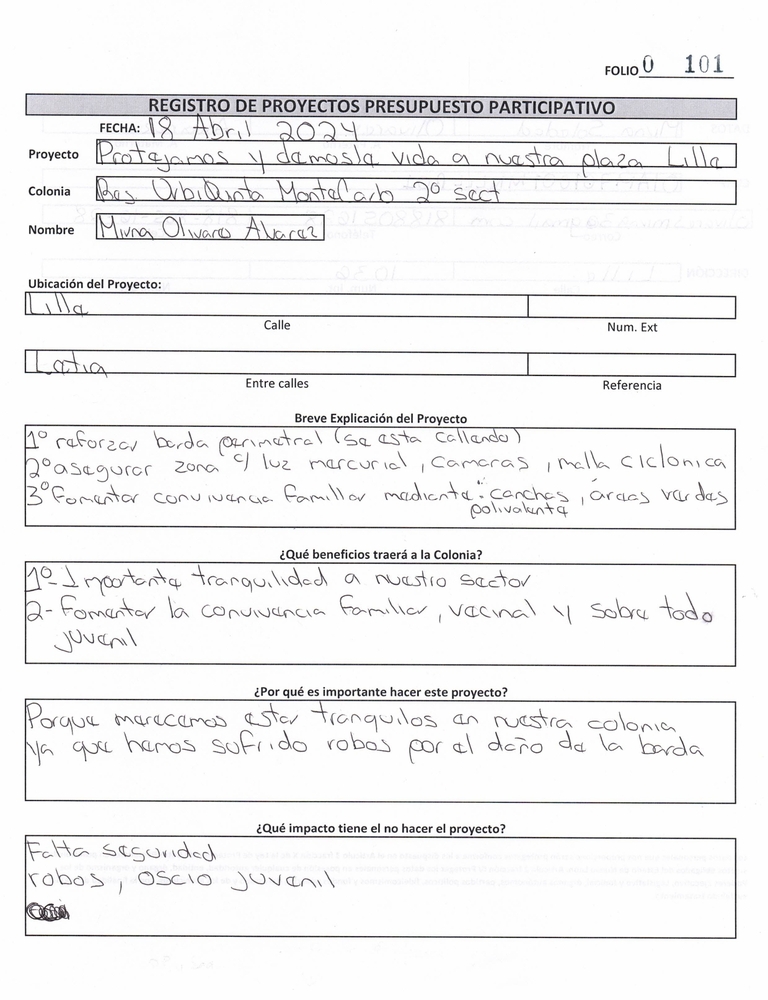 FOLIO 0 101
REGISTRO DE PROYECTOS PRESUPUESTO PARTICIPATIVO
FECHA: 18 Abril 2024
Proyecto Protejamos y demosle vida a nuestra plaza Lilla
Colonia Res Urbi Quinta Montecarlo 2º sect
Nombre Mirna Olivares Alvarez
Ubicación del Proyecto:
Lilla
Calle Num. Ext
Latia
Entre calles Referencia
Breve Explicación del Proyecto
1º reforzar barda perimetral (se esta callendo)
2º asegurar zona c/ luz mercurial, camaras, malla ciclonica
3º Fomentar convivencia familiar mediante: canchas, áreas verdes
polivalente
¿Qué beneficios traerá a la Colonia?
1º- Importante tranquilidad a nuestro sector
2- Fomentar la convivencia familiar, vecinal y sobre todo
juvenil
¿Por qué es importante hacer este proyecto?
Porque merecemos estar tranquilos en nuestra colonia
ya que hemos sufrido robos por el daño de la barda
¿Qué impacto tiene el no hacer el proyecto?
Falta seguridad
robos, oscio juvenil